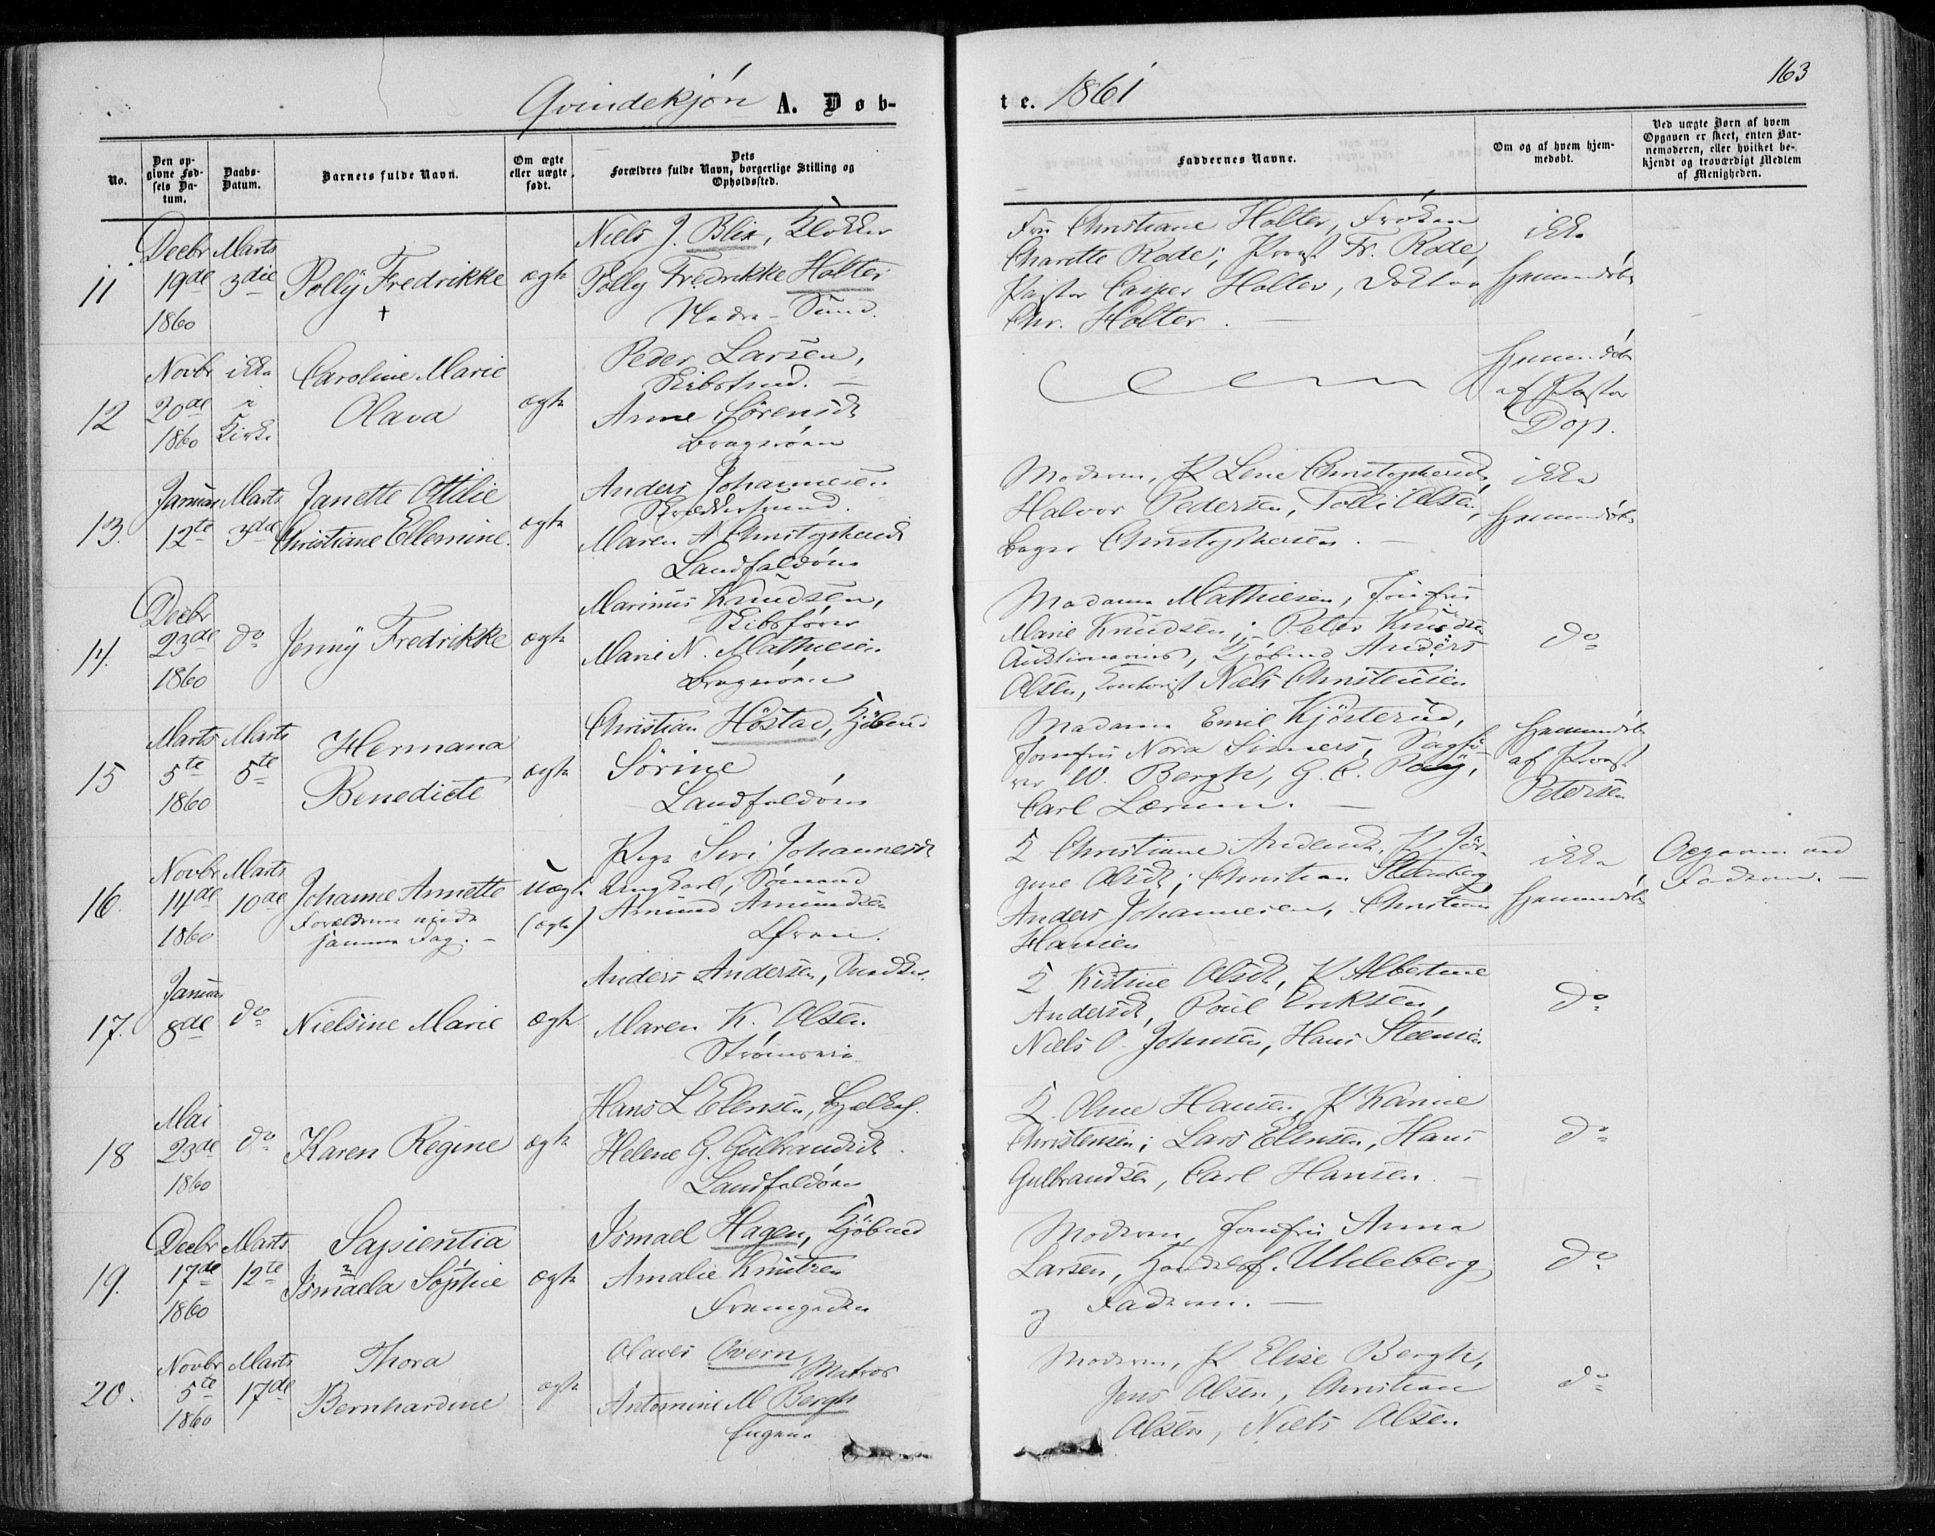 163
Qvindekjøn A. Døb-
te. 1861
No.
Den opgivne Fødsels Datum.
Daabs-Datum.
Barnets fulde Navn.
Om ægte eller uægte født.
Dets Forældres fulde Navn, borgerlige Stilling og Opholdssted.
Faddernes Navne.
Om og af hvem hjemmedøbt.
Ved uægte Børn af hvem Opgaven er skeet, enten Barnemoderen, eller hvilket bekjendt og troværdigt Medlem af Menigheden.
11
Decbr 19de 1860
Marts 3die
Polly Fredrikke
+
ægte
Niels J. Blix, Klokker
Polly Fredrikke Holter
Nedre-Sund.
Fru Christiane Holter, Frøken
Charette Rode; Provst Fr. Rode,
Pastor Casper Holter, Doktor
Chr. Holter.
ikke hjemmedøbt
12
Novbr 20de 1860
ikke i Kirke
Caroline Marie
Olava
ægte
Peder Larsen,
Anne Sørensdt
Bragnøen
hjemmedøbt
af Pastor
Dop.
13.
Januar 12te
Marts 3die
Janette Ottilie
Christiane Ellemine.
ægte
Anders Johannesen
Maren A Christophersdt
Landfaldøen
Moderen, P Lene Christophersdt,
Halvor Pedersen, Tolli Olsen,
Bager Christophersen.
ikke hjemmedøbt
14.
Decbr 23de 1860
do
Jenny Fredrikke
ægte
Marinus Knudsen,
Skibsfører
Marie N. Mathiesen
Bragnøen
Madame Mathiesen, Jomfru
Marie Knudsen; Peter Knudsen
Auktionarius, Kjøbmd Anders
Olsen, Kontorist Niels Christensen
do
15
Marts 5te 1860
Marts 5te
Hermana
Benedicte
ægte
Christian Høstad, Kjøbmd
Sørine
Landfaldøen
Madame Emil Kjøsterud,
Jomfru Nora Simers, Sagfø-
rer W. Bergh, G. C. Pay,
Carl Lærum.
hjemmedøbt
af Provst
Petersen
16.
Novbr 14de 1860
Marts 10de
Johanne Annette
Forældrene viede
samme Dag.
uægte
(ægte)
Pige Siri Johannesdt
Ungkarl, Sømand
Amund Amundsen
Øren.
K Christiane Andersdt, P Jør-
gine Olsdt; Christian Steenberg
Anders Johannesen, Christian
Hansen
ikke hjemmedøbt
Opgaven ved
Faderen.
17.
Januar 8de
do
Nielsine Marie
ægte
Anders Andersen, Snedker
Maren K. Olsen
K Kistine Olsdt, P Albertine
Andersdt, Poul Eriksen,
Niels O. Johnsen, Hans Steensen
do
18
Mai 23de 1860
do
Karen Regine
ægte
Hans L Ellensen,
Helene G. Gulbrandsdt.
Landfaldøen
K. Oline Hansen, P Karine
Christensen; Lars Ellensen, Hans
Gulbrandsen, Carl Hansen.
do
19.
Decbr 17de 1860
Marts 12te
Sapientia
Ismaela Sophie
ægte
Ismael Hagen, Kjøbmd
Amalie Knutzen
Fremgaden
Moderen, Jomfru Anna
Larsen, Handelsf. Uhleberg
og Faderen.
do
20.
Novbr 5te 1860
Marts 17de
Thora
Bernhardine
ægte
Olaves Overn, Matros
Antomine M Bergh
Engene
Moderen, P Elise Bergh,
Jens Olsen, Christian
Olsen, Niels Olsen
do